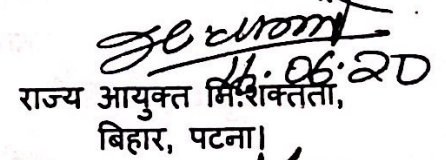 26.06.20
राज्य आयुक्त नि:शक्तता,
बिहार, पटना।